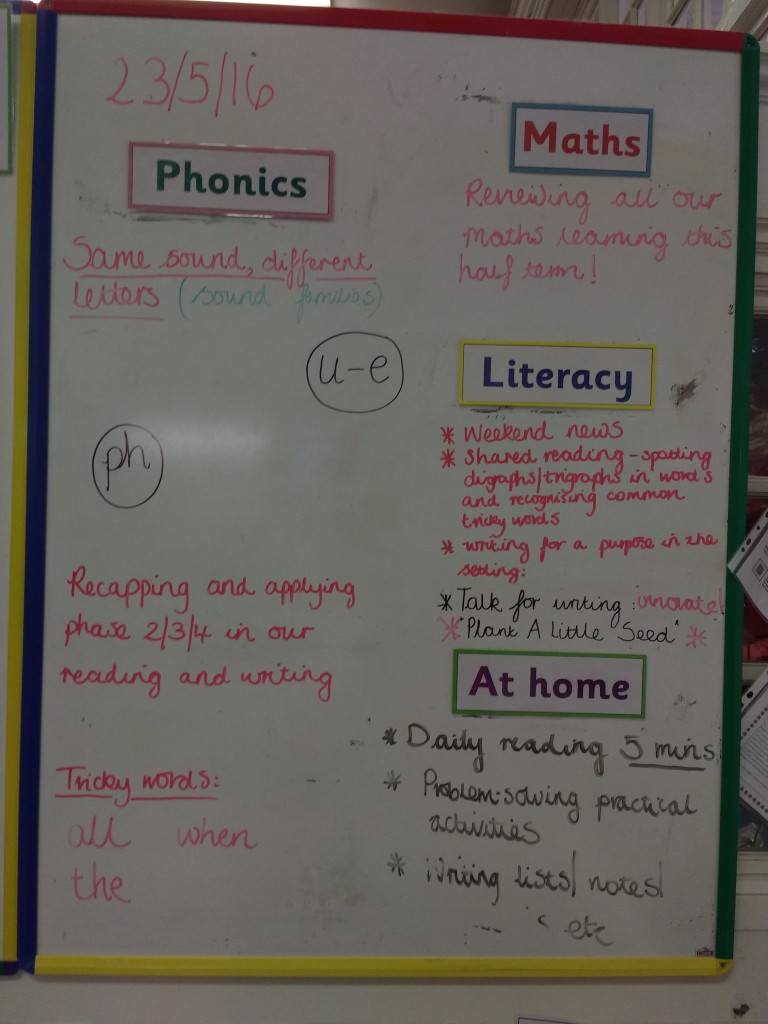 23/5/16
Phonics
Same sound, different
letters (sound families)
u-e
ph
Recapping and applying
phase 2/3/4 in our
reading and writing
Tricky words:
all when
the
Maths
Reviewing all our
maths learning this
half term!
Literacy
* Weekend news
* Shared reading - spotting
digraphs/trigraphs in words
and recognising common
tricky words
* writing for a purpose in the
setting:
* Talk for writing: innovate!
* "Plant A Little Seed" *
At home
* Daily reading 5 mins
* Problem-solving practical
activities
* Writing lists/ notes/
etc